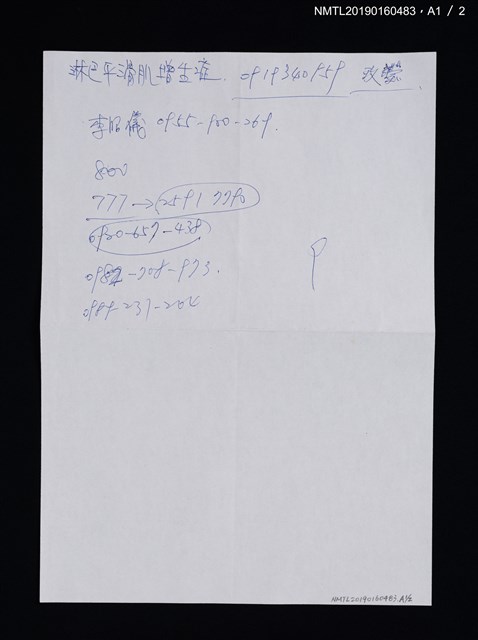 NMTL20190160483，A1 / 2
淋巴平滑肌增生症. 0919340959
李昭儀 0955-900-269.
800
777→2591 7790
0920-657-438
-708-973.
0989-237-204
NMTL20190160483.A1/2